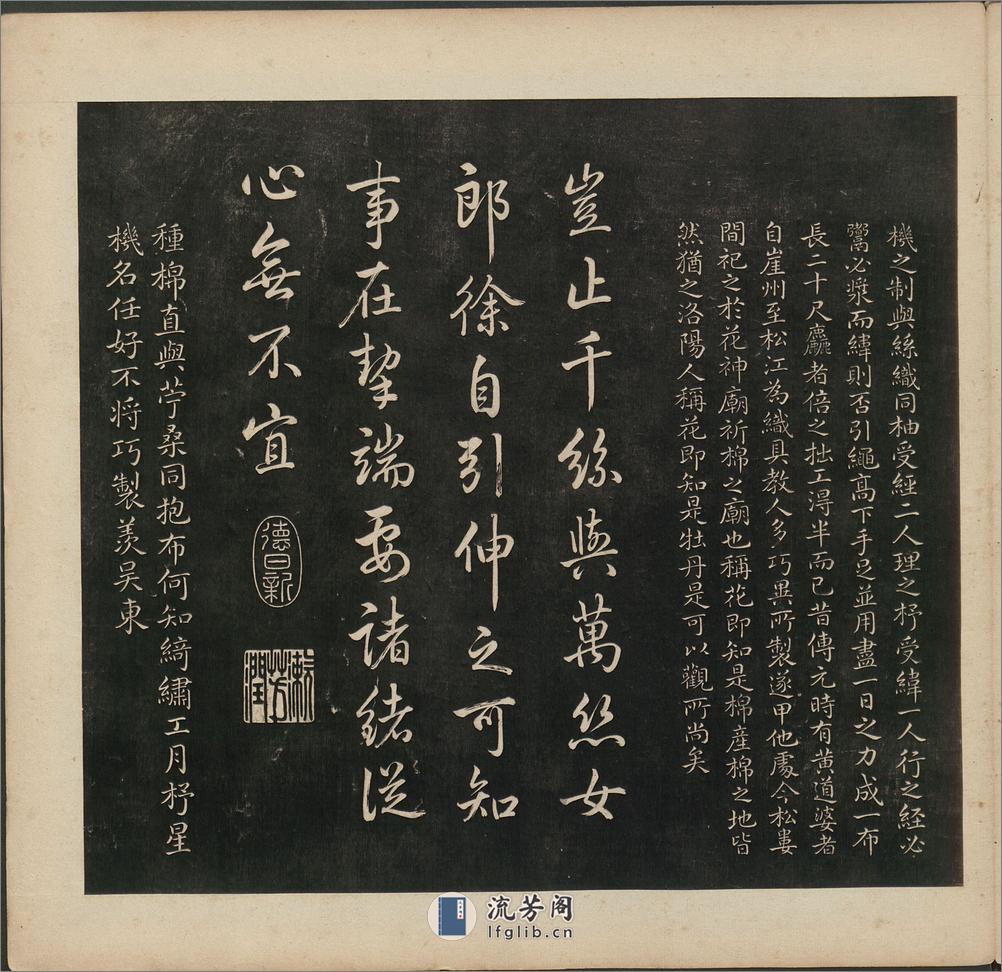 機之制與絲織同柚受經二人理之杼受緯一人行之經必
鬻必漿而緯則否引繩高下手足並用盡一日之力成一布
長二十尺麤者倍之拙工得半而已昔傳元時有黄道婆者
自崖州至松江為織具教人多巧異所製遂甲他處今松婁
間祀之於花神廟祈棉之廟也稱花即知是棉產棉之地皆
然猶之洛陽人稱花即知是牡丹是可以觀所尚矣
豈止千絲與萬丝女
郎徐自引伸之可知
事在挈端要諸緒從
心無不宜
德日新
漱芳潤
種棉直與苧桑同抱布何知綺繡工月杼星
機名任好不將巧製羨吳東
流芳阁
lfglib.cn